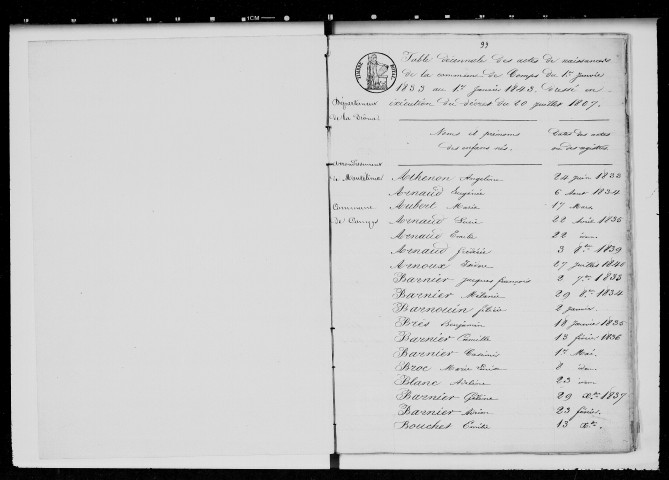 1CM
99
TIMBRE ROYAL
Table décennale des actes de naissances
de la commune de Comps du 1er janvier
1833 au 1er janvier 1843. Dressé en
exécution du décret du 20 juillet 1807.
Département
de la Drôme
Noms et prénoms
des enfans nés.
Dates des actes
ou des registres
arrondissement
de Montélimar
Commune
de Comps
Athenon Angeline 24 juin 1833
Arnaud Eugénie 6 Aout 1834
Aubert Marie 17 Mars
Arnaud Lucie 22 Avril 1836
Arnaud Emile 22 idem
Arnaud Frédéric 3 8bre 1839
Arnoux 27 juillet 1840
Barnier jacques françois 2 7bre 1833
Barnier Mélanie 29 8bre 1834
Barnouin 2 janvier
Brès Benjamin 18 janvier 1835
Barnier Camille 13 février 1836
Barnier Casimir 17 Mai
Broc Marie 8 idem
Blanc Adeline 23 idem
Barnier 29 Xbre 1837
Barnier 23 février
Bouchet Emile 13 Xbre